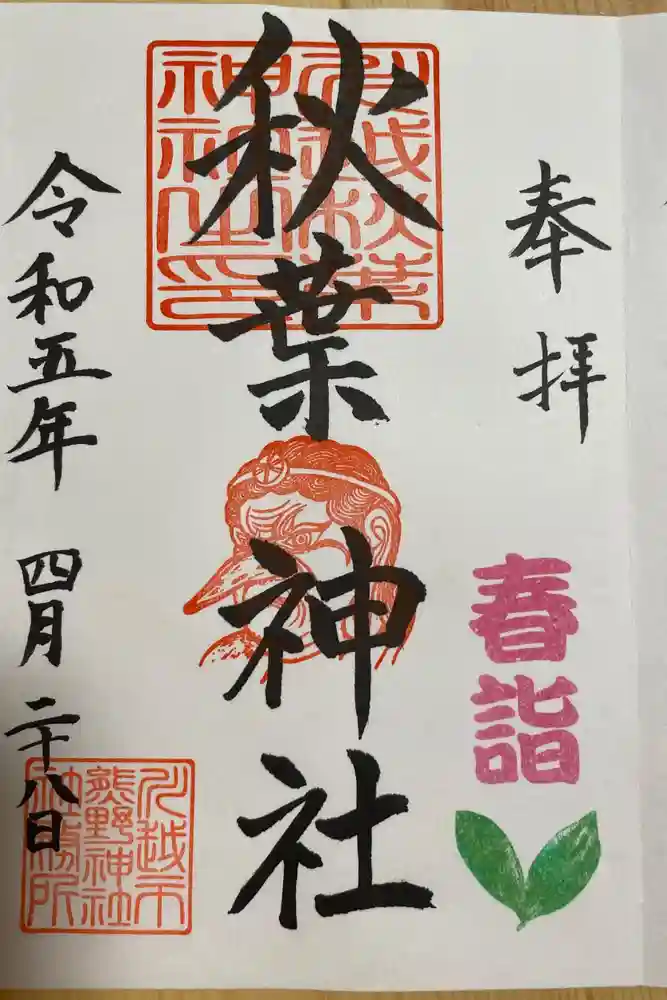 奉拝
春詣
川越秋葉
神社之印
秋葉神社
令和五年 四月 二十八日
川越市
熊野神社
社務所